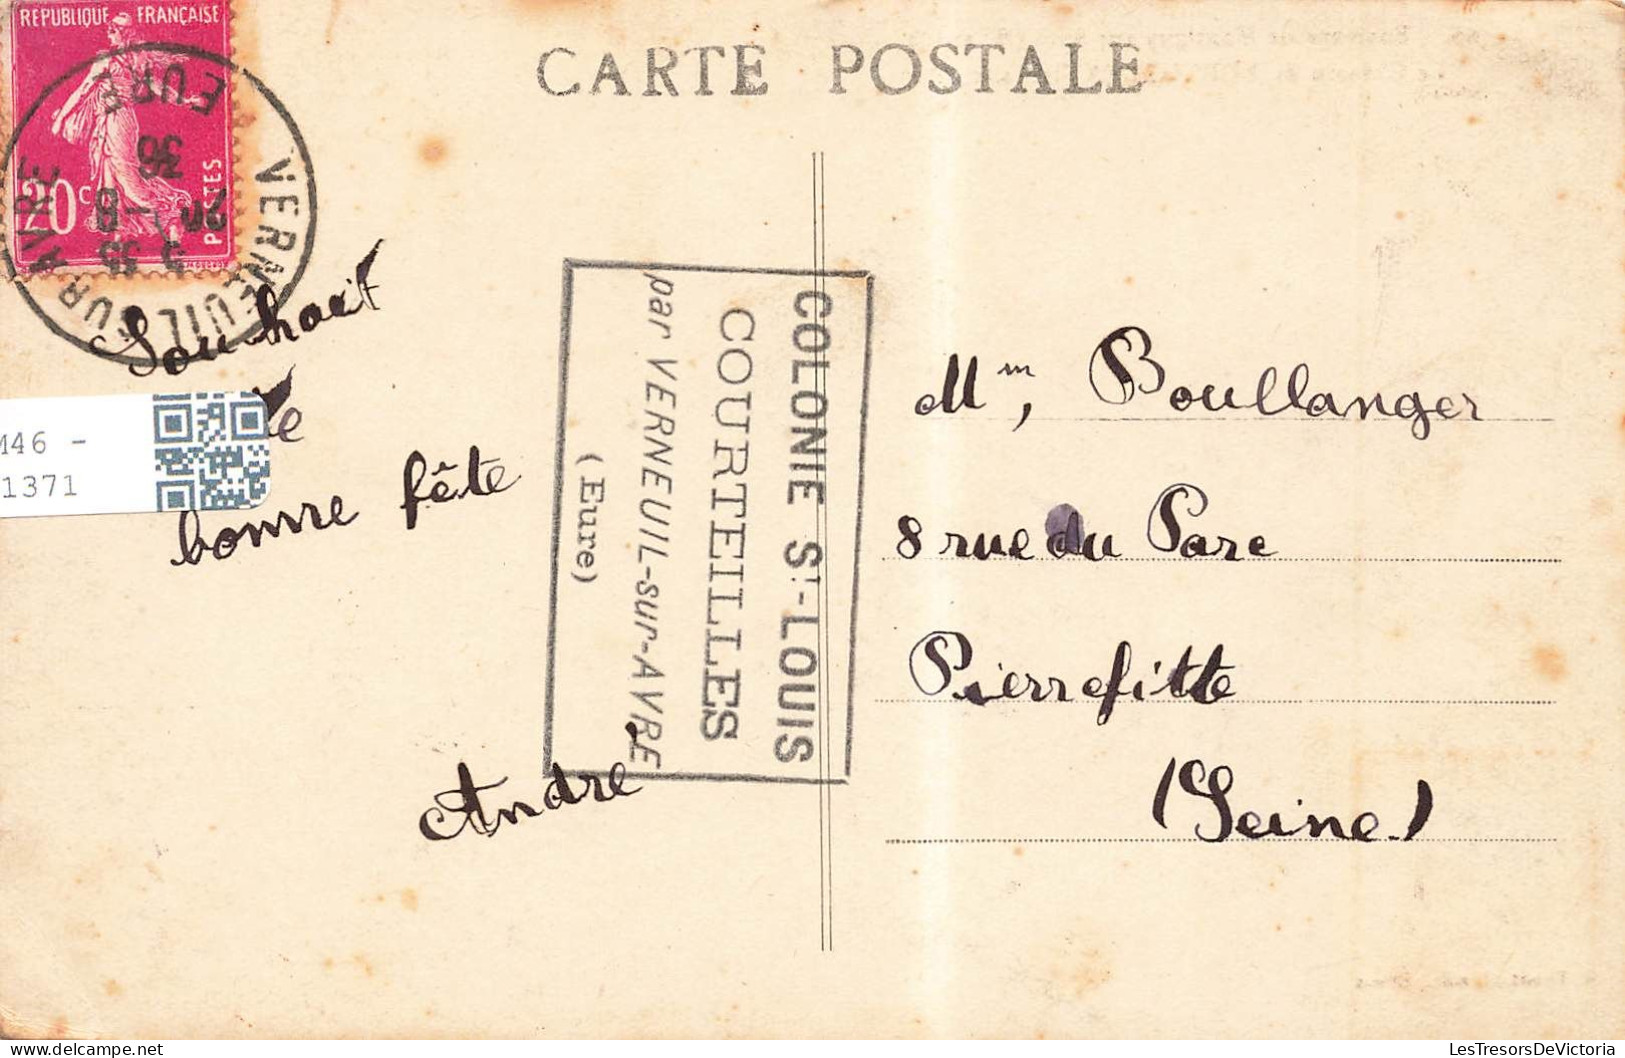 REPUBLIQUE FRANÇAISE
20c
POSTES
VERNEUIL SUR AVRE
EURE
36
CARTE POSTALE
Souhait
bonne fête
André
M46 -
1371
COLONIE St-LOUIS
COURTEILLES
par VERNEUIL-sur-AVRE
(Eure)
Mm, Boullanger
8 rue du Parc
Pierrefitte
(Seine)
LesTresorsDeVictoria